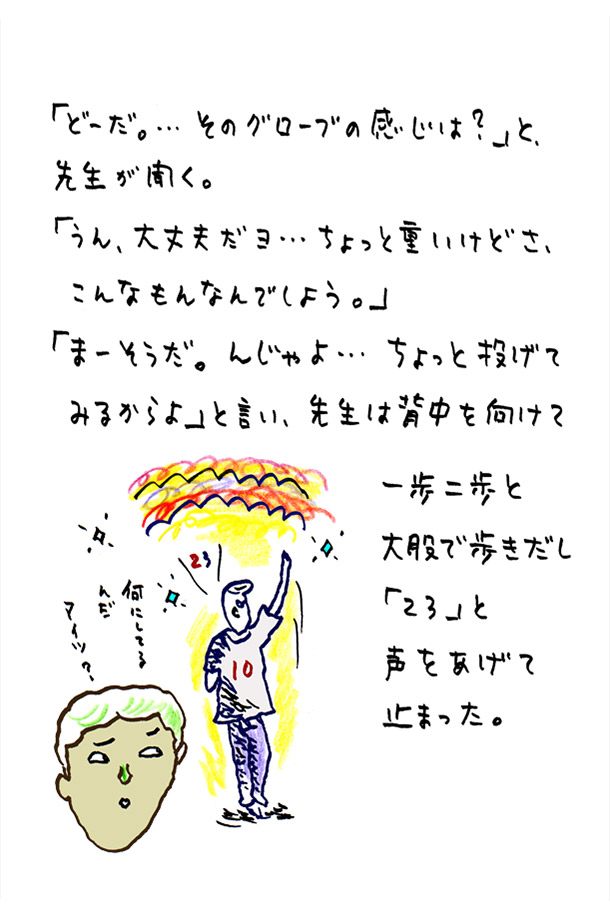 「どーだ。… そのグローブの感じは?」と、
先生が聞く。
「うん、大丈夫だヨ… ちょっと重いけどさ、
こんなもんなんでしょう。」
「まーそうだ。んじゃよ… ちょっと投げて
みるからよ」と言い、先生は背中を向けて
一歩二歩と
大股で歩きだし
「23」と
声をあげて
止まった。
23
何にしてる
んだ
アイツ?
10